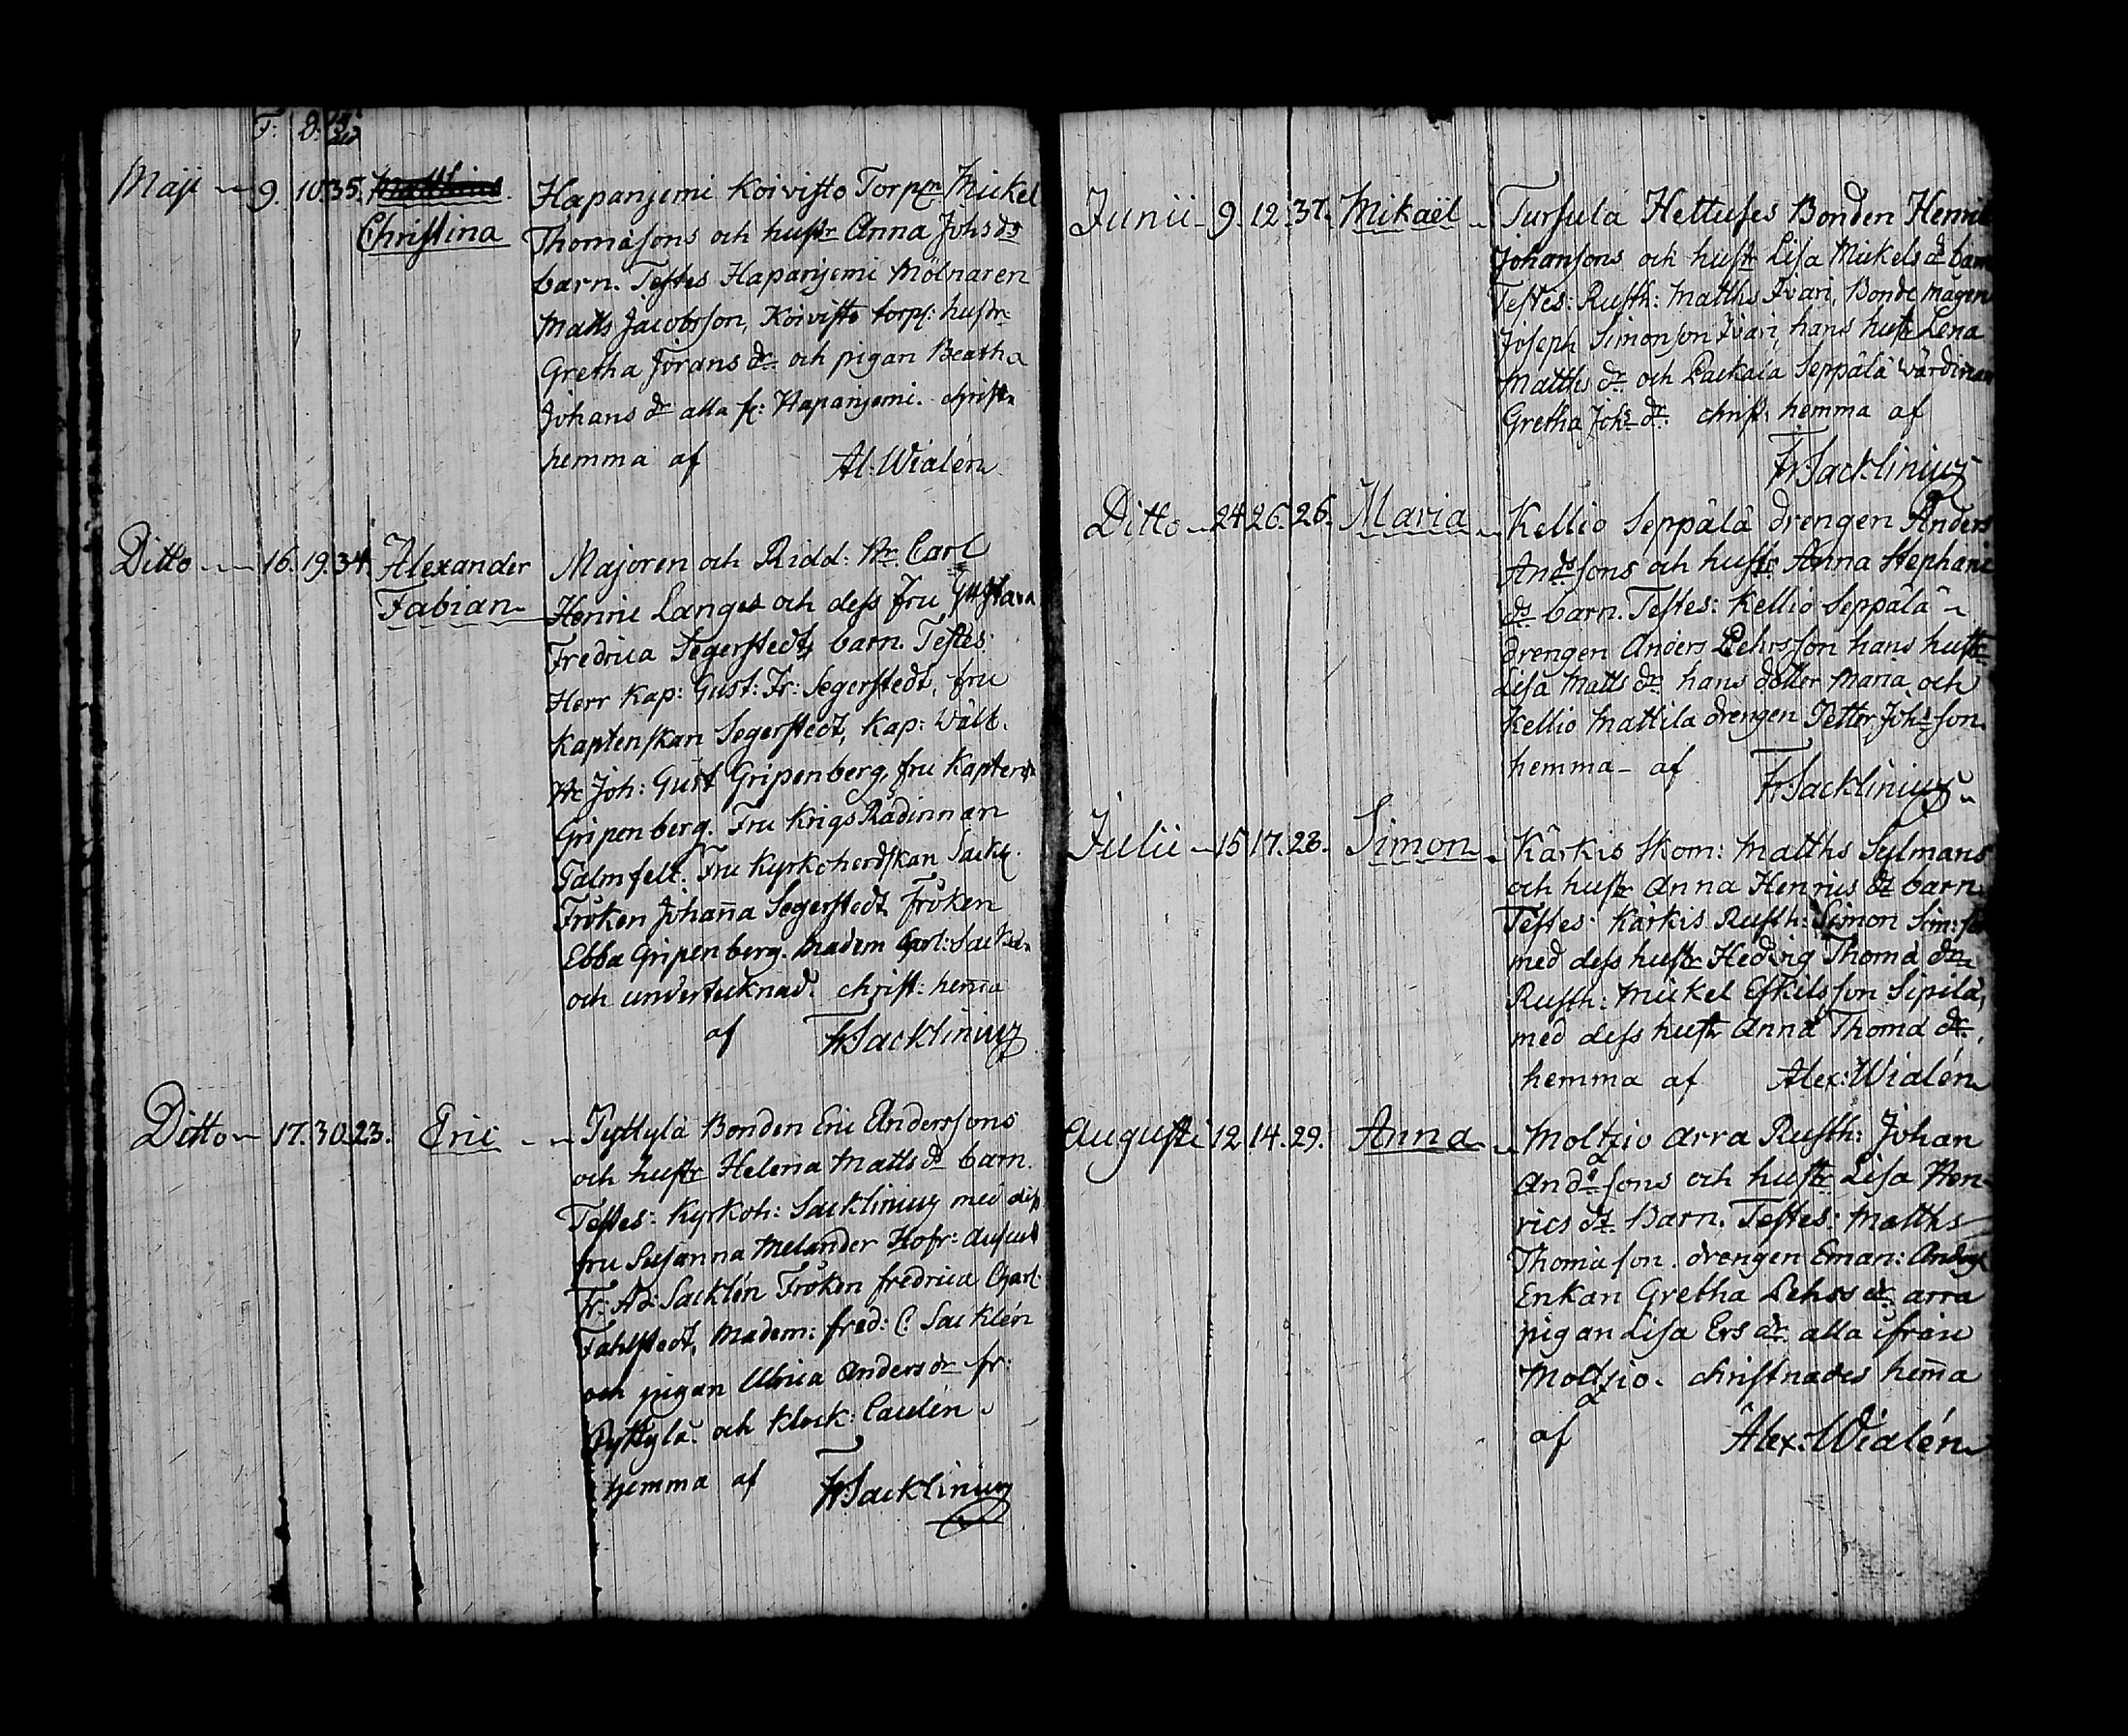 F: D:
Maji 9. 10. 35. Matthias. Hapanjemi Koivisto Torp:n Mickel
Christina Thomasons och hustr Anna Johs ds
barn. Testes Hapanjemi Mölnaren
Matts Jacobsson, Koivisto torp: hustr:
Gretha Jörans dr och pigan Beatha
Johans dr alla fr: Hapanjemi. christn
hemma af Al: Wialén
Ditto 16. 19. 34. Alexander Majoren och Ridd: Hr. Carl
Fabian Henric Langes och dess fru Gustava
Fredrica Segerstedts barn. Testes:
Herr Kap: Gust: Fr: Segerstedt, fru
Kaptenskan Segerstedt, Kap: Wälb.
Hr Joh: Gust Gripenberg, fru Kaptensk
Gripenberg. Fru KrigsRådinnan
Palmfelt. Fru Kyrkoherdskan Sackl.
Fröken Johana Segerstedt fröken
Ebba Gripenberg. Madem Carl: Sacklén
och undertecknad. christ: hema
af Fr Sacklinius
Ditto 17. 30. 23. Eric Pyttylä Bonden Eric Anderssons
och hustr Helena Matts ds barn.
Testes: Kyrkoh: Sacklinius med dess
fru Susanna Melander Hofr: Auscult
Fr: Ad: Sacklén Fröken fredrica Charl:
Fahlstedt, Madem: fred: C: Sacklén
och pigan Ulrica Anders dr fr:
Pyttylä. och Klock: Caulén.
hemma af Fr Sacklinius
Junii 9. 12. 37. Mikaël Tursula Hettuses Bonden Henric
Johansons och hustr Lisa Mickels ds barn
Testes: Rusth: Matths Ivari, Bonde mågen
Joseph Simonson Ivari, hans hustr Lena
Matths dr och Lackala Seppälä Wärdinan
Gretha Johs dr. christ. hemma af
Fr Sacklinius
Ditto 24 26. 26. Maria Kellio Seppälä drengen Anders
Andssons och hustr Anna Stephans
ds barn. Testes: Kellio Seppälä
drengen Anders Pehrsson hans hustr
Lisa Matts dr hans dotter Maria och
Kellio Mattila drengen Petter Johsson.
hemma af Fr Sacklinius
Julii 15 17. 28. Simon Kärkis Skom: Matths Sylmans
och hustr Anna Henrics ds barn
Testes: Kärkis Rusth: Simon Sim:son
med dess hustr Hedvig Thoma dr
Rusth: Mickel Eskilsson Sipilä,
med dess hustr Anna Thoma dr.
hemma af Alex: Wialén
Augusti 12 14. 29. Anna Moltzio arra Rusth: Johan
Andssons och hustr Lisa Hen-
rics ds Barn. Testes: Matths
Thomason. drengen Eman: Anders
Enkan Gretha Pehrs dr arra
pigan Lisa Ers dr alla ifrån
Moltzio. christnades hema
af Alex: Wialén